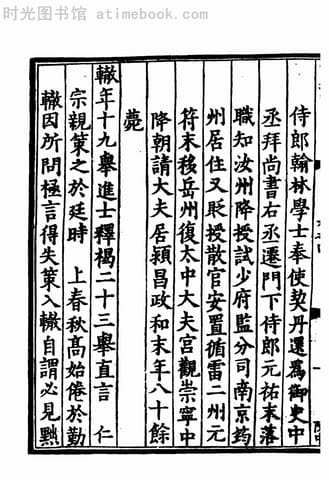 时光图书馆 - atimebook.com
侍郎翰林學士奉使契丹還為御史中
丞拜尚書右丞遷門下侍郎元祐末落
職知汝州降授試少府監分司南京筠
州居住又貶授散官安置循雷二州元
符末移岳州復太中大夫宮觀崇寧中
降朝請大夫居潁昌政和末年八十餘
薨
轍年十九舉進士釋褐二十三舉直言　仁
宗親策之於廷時　上春秋高始倦於勤
轍因所問極言得失策入轍自謂必見黜